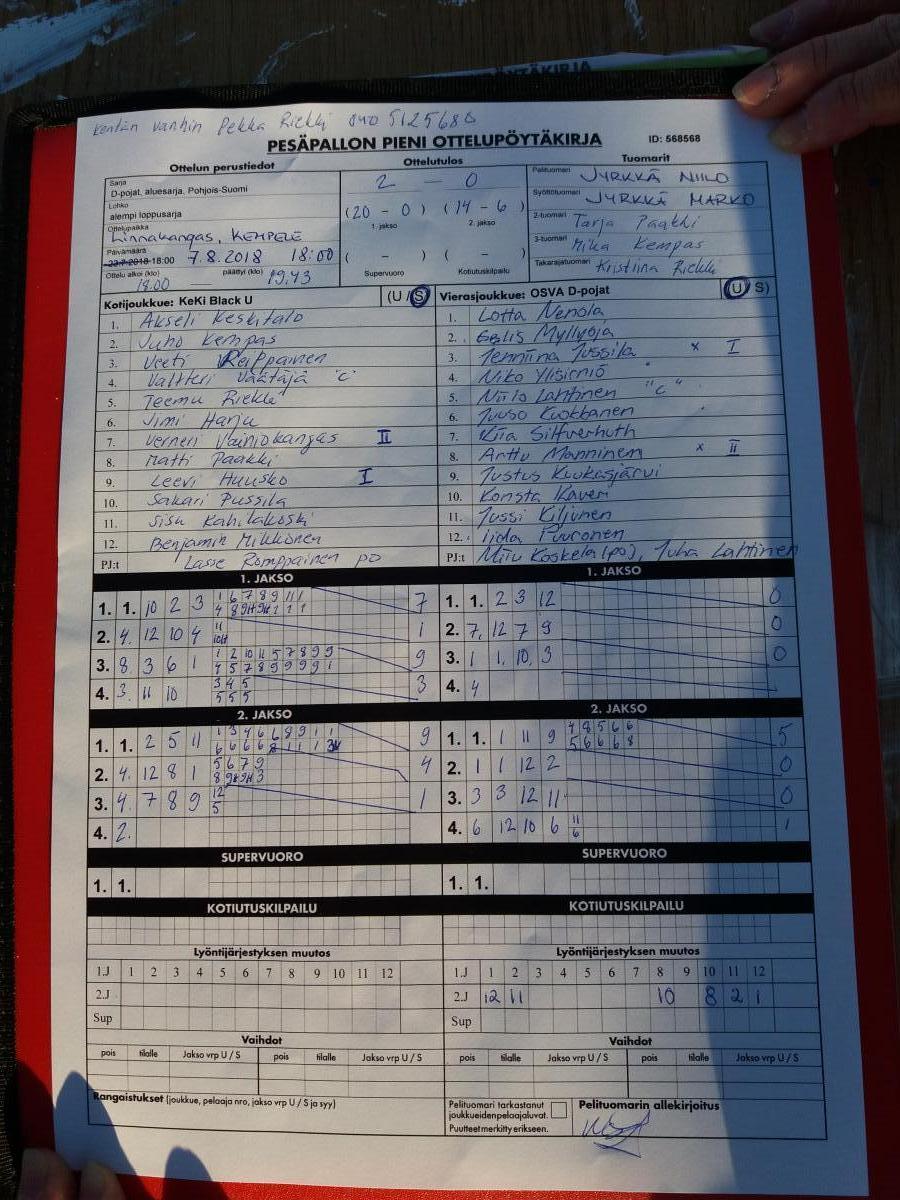 kentän vanhin Pekka Riekki 040 5125680
PESÄPALLON PIENI OTTELUPÖYTÄKIRJA ID: 568568
Ottelun perustiedot Ottelutulos Tuomarit
Sarja
D-pojat, aluesarja, Pohjois-Suomi
Lohko
alempi loppusarja
Ottelupaikka
Linnakangas, KEMPELE
Päivämäärä
18:00 7.8.2018 18:00
Ottelu alkoi (klo) päättyi (klo)
18.00 — 19.43
2 – 0
(20 – 0) (14 – 6)
1. jakso 2. jakso
( – ) ( – )
Supervuoro Kotiutuskilpailu
Pelituomari JYRKKÄ NIILO
Syöttötuomari JYRKKÄ MARKO
2-tuomari Tarja Paakki
3-tuomari Mika Kempas
Takarajatuomari Kristiina Riekki
Kotijoukkue: KeKi Black U (U / S)
1. Akseli Keskitalo
2. Juho Kempas
3. Veeti Reippainen
4. Valtteri Väätäjä "C"
5. Teemu Riekki
6. Jimi Harju
7. Verneri Vainiokangas II
8. Matti Paakki
9. Leevi Huusko I
10. Sakari Pussila
11. Sisu Kahilakoski
12. Benjamin Mikkonen
PJ:t Lasse Romppainen po
Vierasjoukkue: OSVA D-pojat (U / S)
1. Lotta Nenola
2. Myllyoja
3. Jenniina Jussila x I
4. Niko Ylisirniö
5. Niilo Lahtinen "C"
6. Juuso Kuokkanen
7. Kiia Silfverhuth
8. Arttu Manninen x II
9. Justus Kuukasjärvi
10. Konsta Kaveri
11. Jussi Kiljunen
12. Iida Puuronen
PJ:t Miru Koskela (po), Juha Lahtinen
1. JAKSO
1. 1. 10 2 3 1 6 7 8 9 11 1 7
4 8 9H 9H 1 1 1
2. 4. 12 10 4 11 1
10H
3. 8. 3 6 1 1 2 10 11 5 7 8 9 9 9
4 5 7 8 9 9 9 9 1
4. 3. 11 10 3 4 5 3
5 5 5
1. JAKSO
1. 1. 2 3 12 0
2. 7, 12 7 9 0
3. 1 1, 10, 3 0
4. 4
2. JAKSO
1. 1. 2 5 11 1 3 4 6 6 8 9 1 1 9
6 6 6 6 8 1 1 1
2. 4. 12 8 1 5 6 7 9 4
8 9H 9H 3
3. 4. 7 8 9 12 1
5
4. 2.
2. JAKSO
1. 1. 1 11 9 4 8 5 6 6 5
5 6 6 6 8
2. 1 1 12 2 0
3. 3 3 12 11 0
4. 6 12 10 6 11 1
6
SUPERVUORO
1. 1.
SUPERVUORO
1. 1.
KOTIUTUSKILPAILU
KOTIUTUSKILPAILU
Lyöntijärjestyksen muutos
1.J 1 2 3 4 5 6 7 8 9 10 11 12
2.J
Sup
Lyöntijärjestyksen muutos
1.J 1 2 3 4 5 6 7 8 9 10 11 12
2.J 12 11 10 8 2 1
Sup
Vaihdot
pois tilalle Jakso vrp U / S pois tilalle Jakso vrp U / S
Vaihdot
pois tilalle Jakso vrp U / S pois tilalle Jakso vrp U / S
Rangaistukset (joukkue, pelaaja nro, jakso vrp U / S ja syy)
Pelituomari tarkastanut
joukkueidenpelaajaluvat.
Puutteet merkitty erikseen.
Pelituomarin allekirjoitus